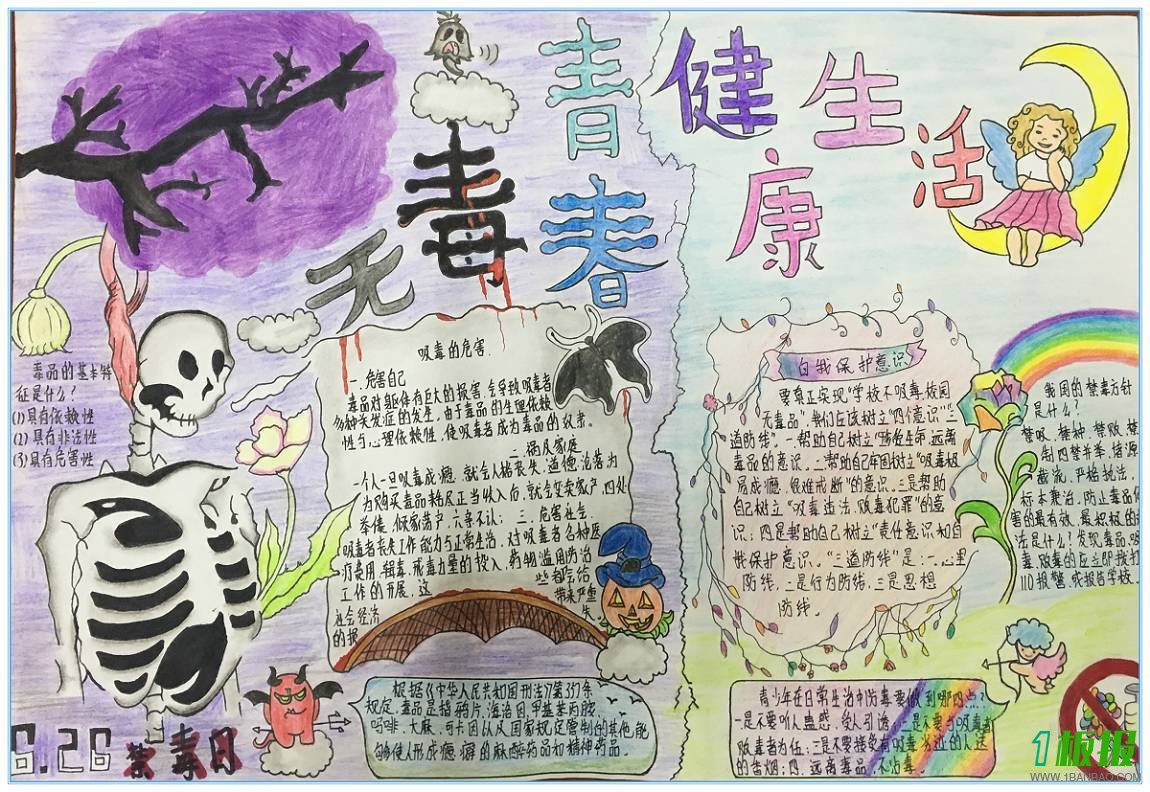 无毒青春
健康生活
毒品的基本特
征是什么？
(1)具有依赖性
(2)具有非法性
(3)具有危害性
吸毒的危害.
一.危害自己
毒品对躯体有巨大的损害,会导致吸毒者
多种并发症的发生,由于毒品的生理依赖
性与心理依赖性,使吸毒者成为毒品的奴隶.
二.祸及家庭
一个人一旦吸毒成瘾,就会人格丧失,道德沦落为
为购买毒品耗尽正当收入后,就会变卖家产,四处
举债,倾家荡产,六亲不认; 三.危害社会
吸毒者丧失工作能力与正常生活,对吸毒者各种医
疗费用,缉毒,戒毒力量的投入,药物滥用防治
工作的开展,这些都给
社会经济带来严重
的损失.
根据《中华人民共和国刑法》第357条
规定,毒品是指鸦片,海洛因,甲基苯丙胺,
吗啡,大麻,可卡因以及国家规定管制的其他能
够使人形成瘾癖的麻醉药品和精神药品。
6.26禁毒日
自我保护意识
要真正实现“学校不吸毒,校园
无毒品”,我们应该树立“四个意识”“三
道防线”,一.帮助自己树立“珍爱生命,远离
毒品的意识,二.帮助自己牢固树立“吸毒极
易成瘾,很难戒断”的意识,三是帮助
自己树立“吸毒违法,贩毒犯罪”的意
识;四是帮助自己树立“责任意识和自
我保护意识。“三道防线”是:一.心里
防线,二是行为防线,三是思想
防线。
我国的禁毒方针
是什么？
禁吸,禁种,禁贩,禁
制四禁并举,堵源
截流,严格执法,
标本兼治,防止毒品危
害的最有效,最积极的办
法是什么?发现毒品,吸
毒,贩毒的应立即拨打
110报警,或报告学校.
青少年在日常生活中防毒要做到哪四点?
一是不要听人蛊惑,受人引诱;二是不要与吸毒者
吸毒者为伍;三是不要接受有吸毒劣迹的人送
的香烟;四,远离毒品,不沾毒。
1板报
WWW.1BANBAO.COM